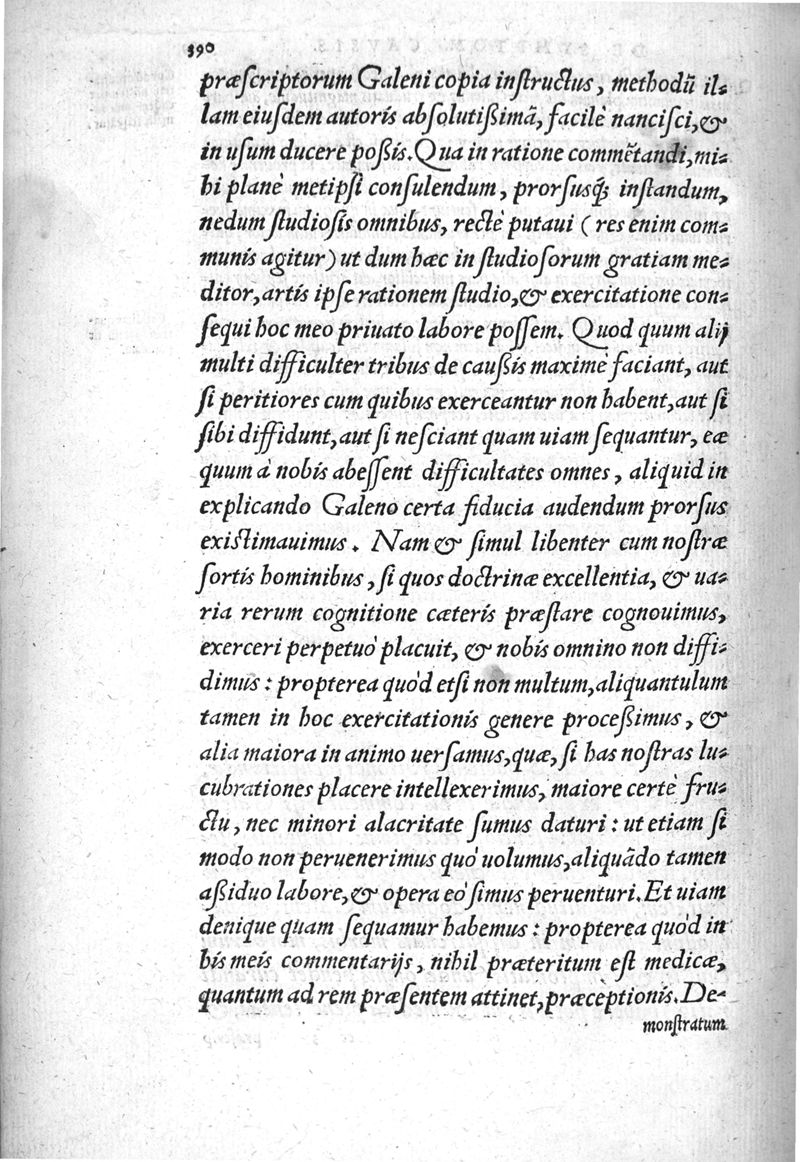 390
præſcriptorum Galeni copia inſtructus, methodū il-
lam eiuſdem autoris abſolutißimā, facilè nanciſci, &
in uſum ducere poßis. Qua in ratione commētandi, mi-
hi planè metipſi conſulendum, prorſusq́; inſtandum,
nedum ſtudioſis omnibus, rectè putaui ( res enim com-
munis agitur) ut dum hæc in ſtudioſorum gratiam me-
ditor, artis ipſe rationem ſtudio, & exercitatione con-
ſequi hoc meo priuato labore poſſem. Quod quum alij
multi difficulter tribus de caußis maximè faciant, aut
ſi peritiores cum quibus exerceantur non habent, aut ſi
ſibi diffidunt, aut ſi neſciant quam uiam ſequantur, eæ
quum à nobis abeſſent difficultates omnes, aliquid in
explicando Galeno certa fiducia audendum prorſus
exiſtimauimus. Nam & ſimul libenter cum noſtræ
ſortis hominibus, ſi quos doctrinæ excellentia, & ua-
ria rerum cognitione cæteris præſtare cognouimus,
exerceri perpetuò placuit, & nobis omnino non diffi-
dimus: propterea quòd etſi non multum, aliquantulum
tamen in hoc exercitationis genere proceßimus, &
alia maiora in animo uerſamus, quæ, ſi has noſtras lu-
cubrationes placere intellexerimus, maiore certè fru-
ctu, nec minori alacritate ſumus daturi: ut etiam ſi
modo non peruenerimus quò uolumus, aliquādo tamen
aßiduo labore, & opera eò ſimus peruenturi. Et uiam
denique quam ſequamur habemus: propterea quòd in
his meis commentarijs, nihil præteritum eſt medicæ,
quantum ad rem præſentem attinet, præceptionis. De-
monſtratum